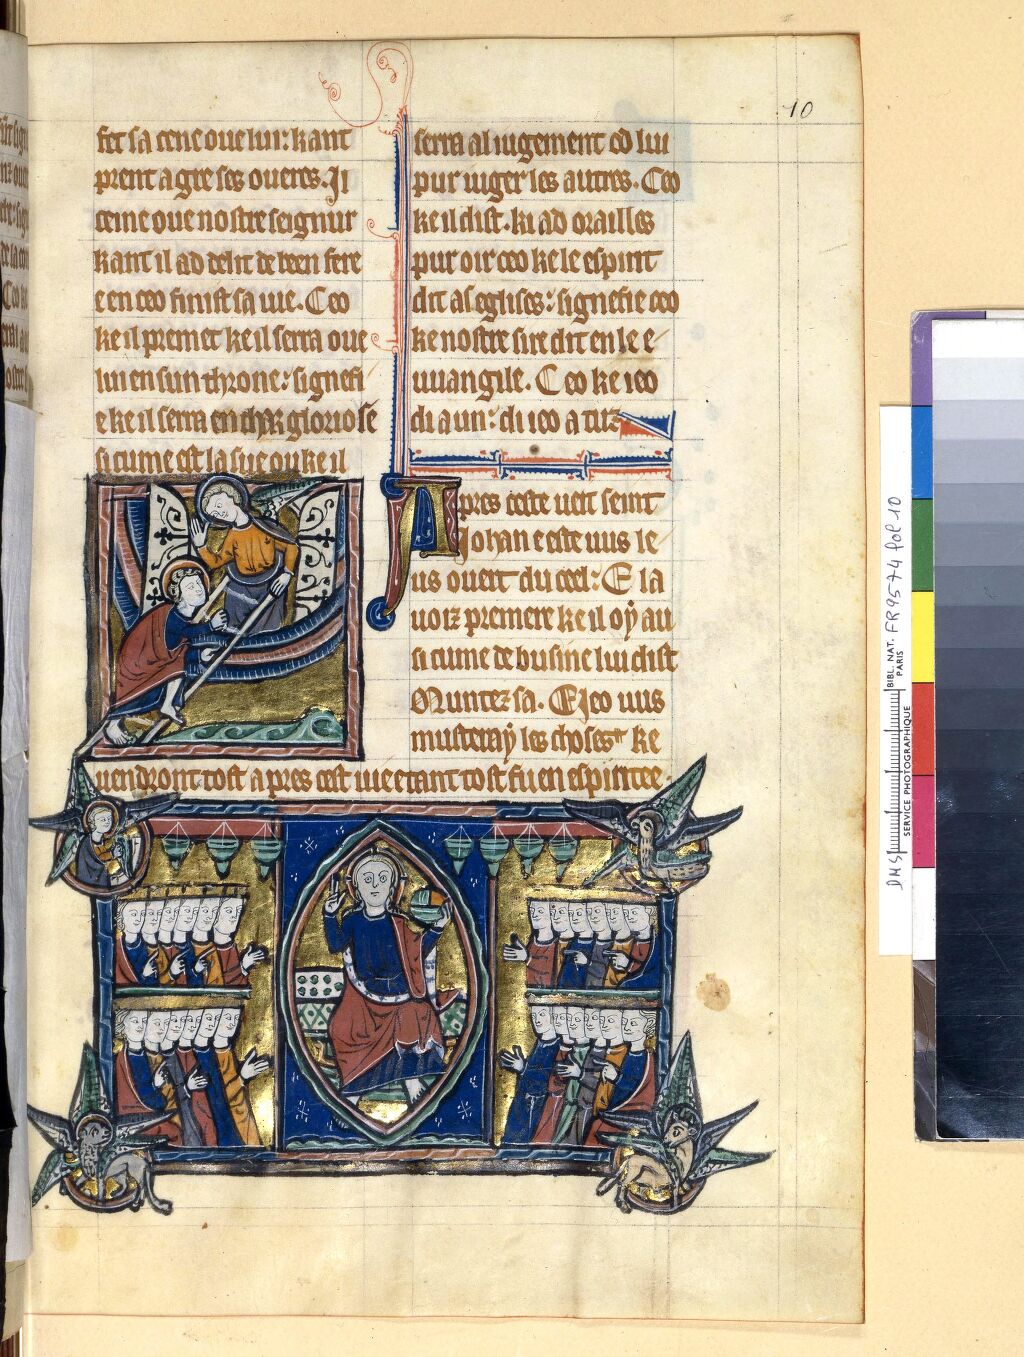 10
fet sa cene oue lui: kant
prent a gre ses oueres. Il
ceine oue nostre seignur
kant il ad delit de been fere
e en ceo finist sa uie. Ceo
ke il premet ke il serra oue
lui en sun throne: signefi
e ke il serra en char gloriose
si cume est la sue ou ke il
serra al iugement od lui
pur iuger les autres. Ceo
ke il dist. ki ad orailles
pur oir ceo ke le espirit
dit as eglises: signefie ceo
ke nostre sire dit en le e
uuangile. Ceo ke ieo
di a un: di ieo a tuz
Apres ceste ueit seint
Johan e este uus le
us ouert du ceel: E la
uoiz premere ke il oy au
si cume de busine lui dist
Muntez sa. E ieo uus
musteray les choses ke
uendront tost apres cest uie etant tost fu en espirit e.
BIBL. NAT.
PARIS
FR 9574 fol 10
SERVICE PHOTOGRAPHIQUE